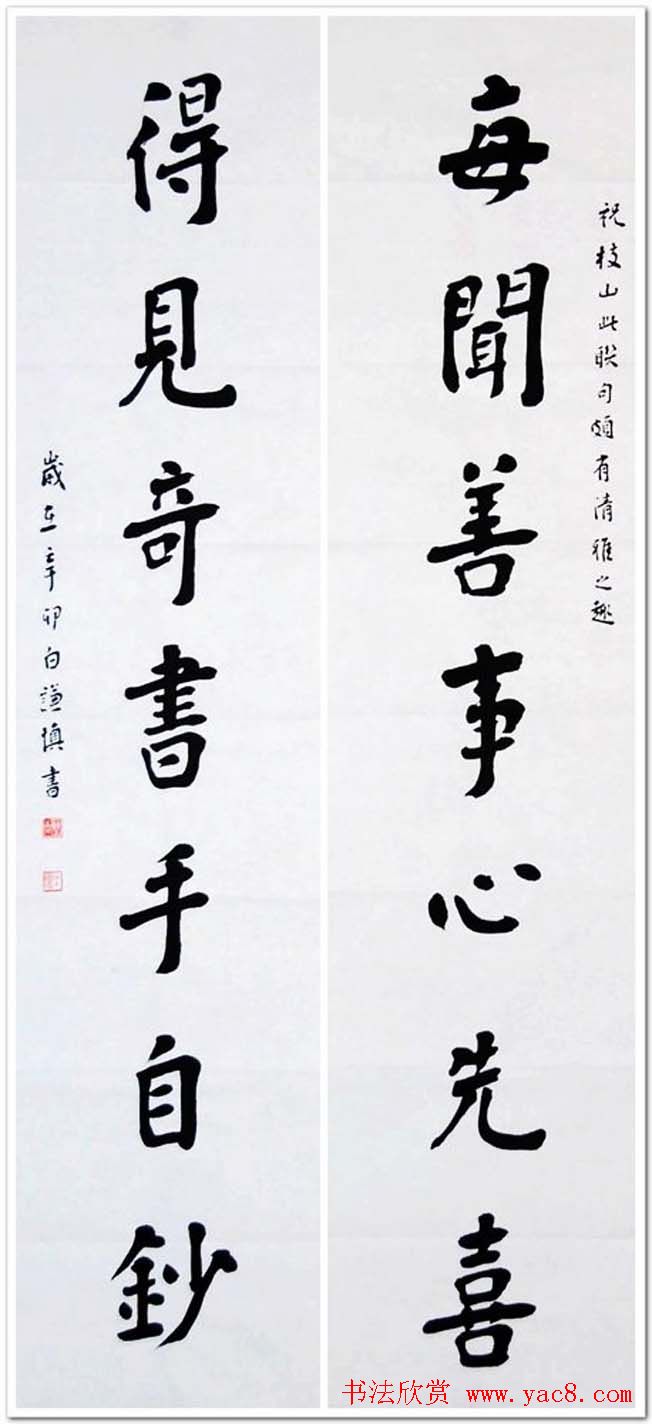 祝枝山此联句颇有清雅之趣
每聞善事心先喜
得見奇書手自鈔
歲在辛卯白謙慎書
书法欣赏 www.yac8.com